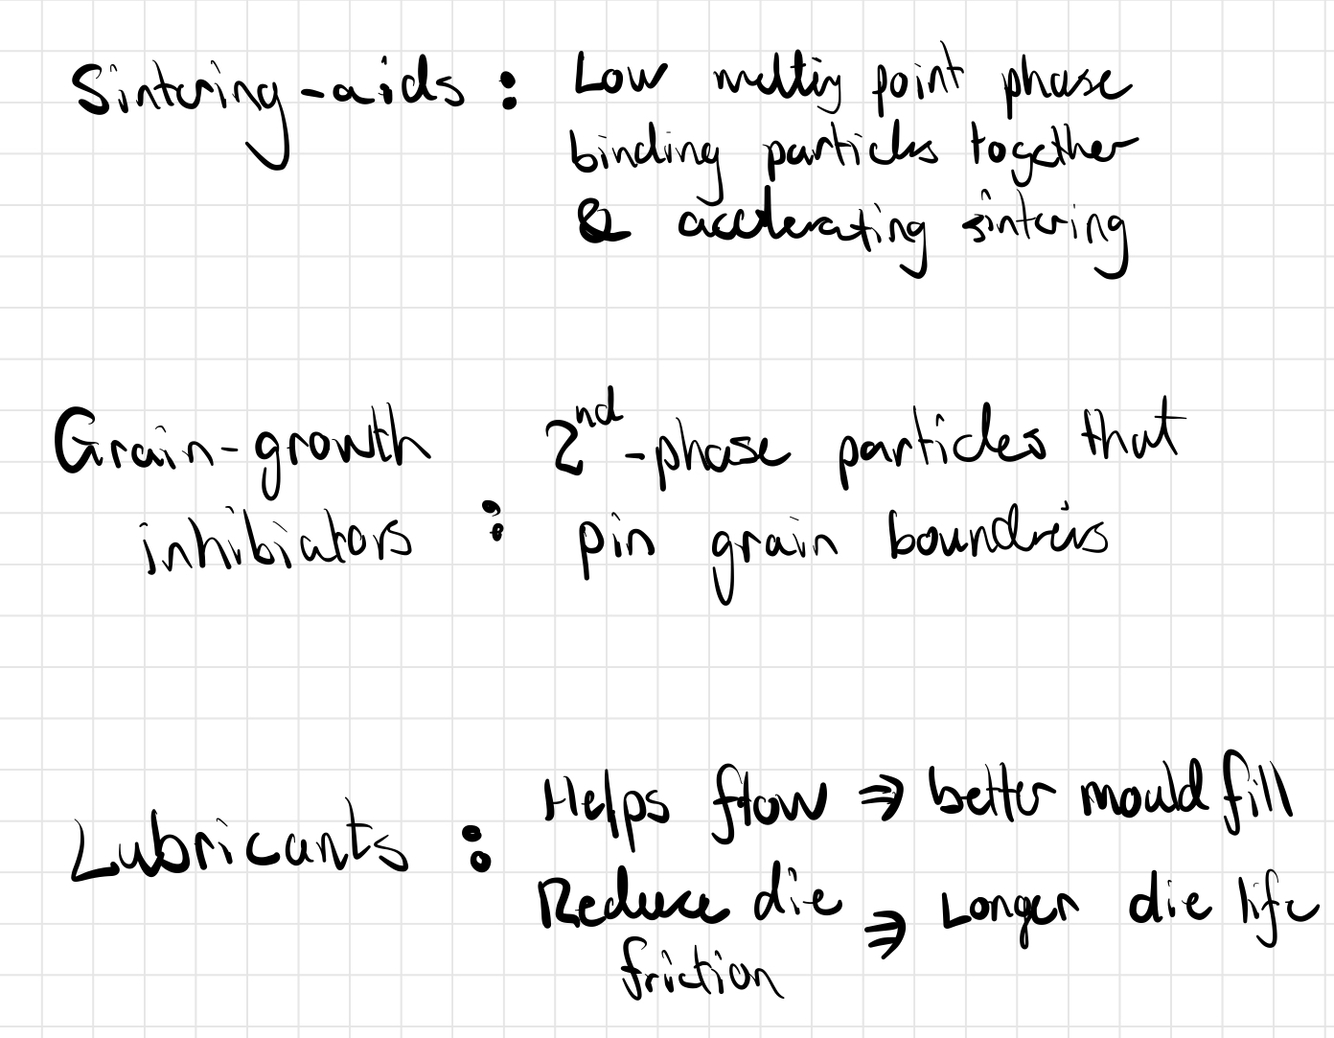 Sintering-aids : Low melting point phase
binding particles together
& accelerating sintering
Grain-growth 2nd-phase particles that
inhibiators : pin grain boundreis
Lubricants : Helps flow ⇒ better mould fill
Reduce die ⇒ Longer die life
friction